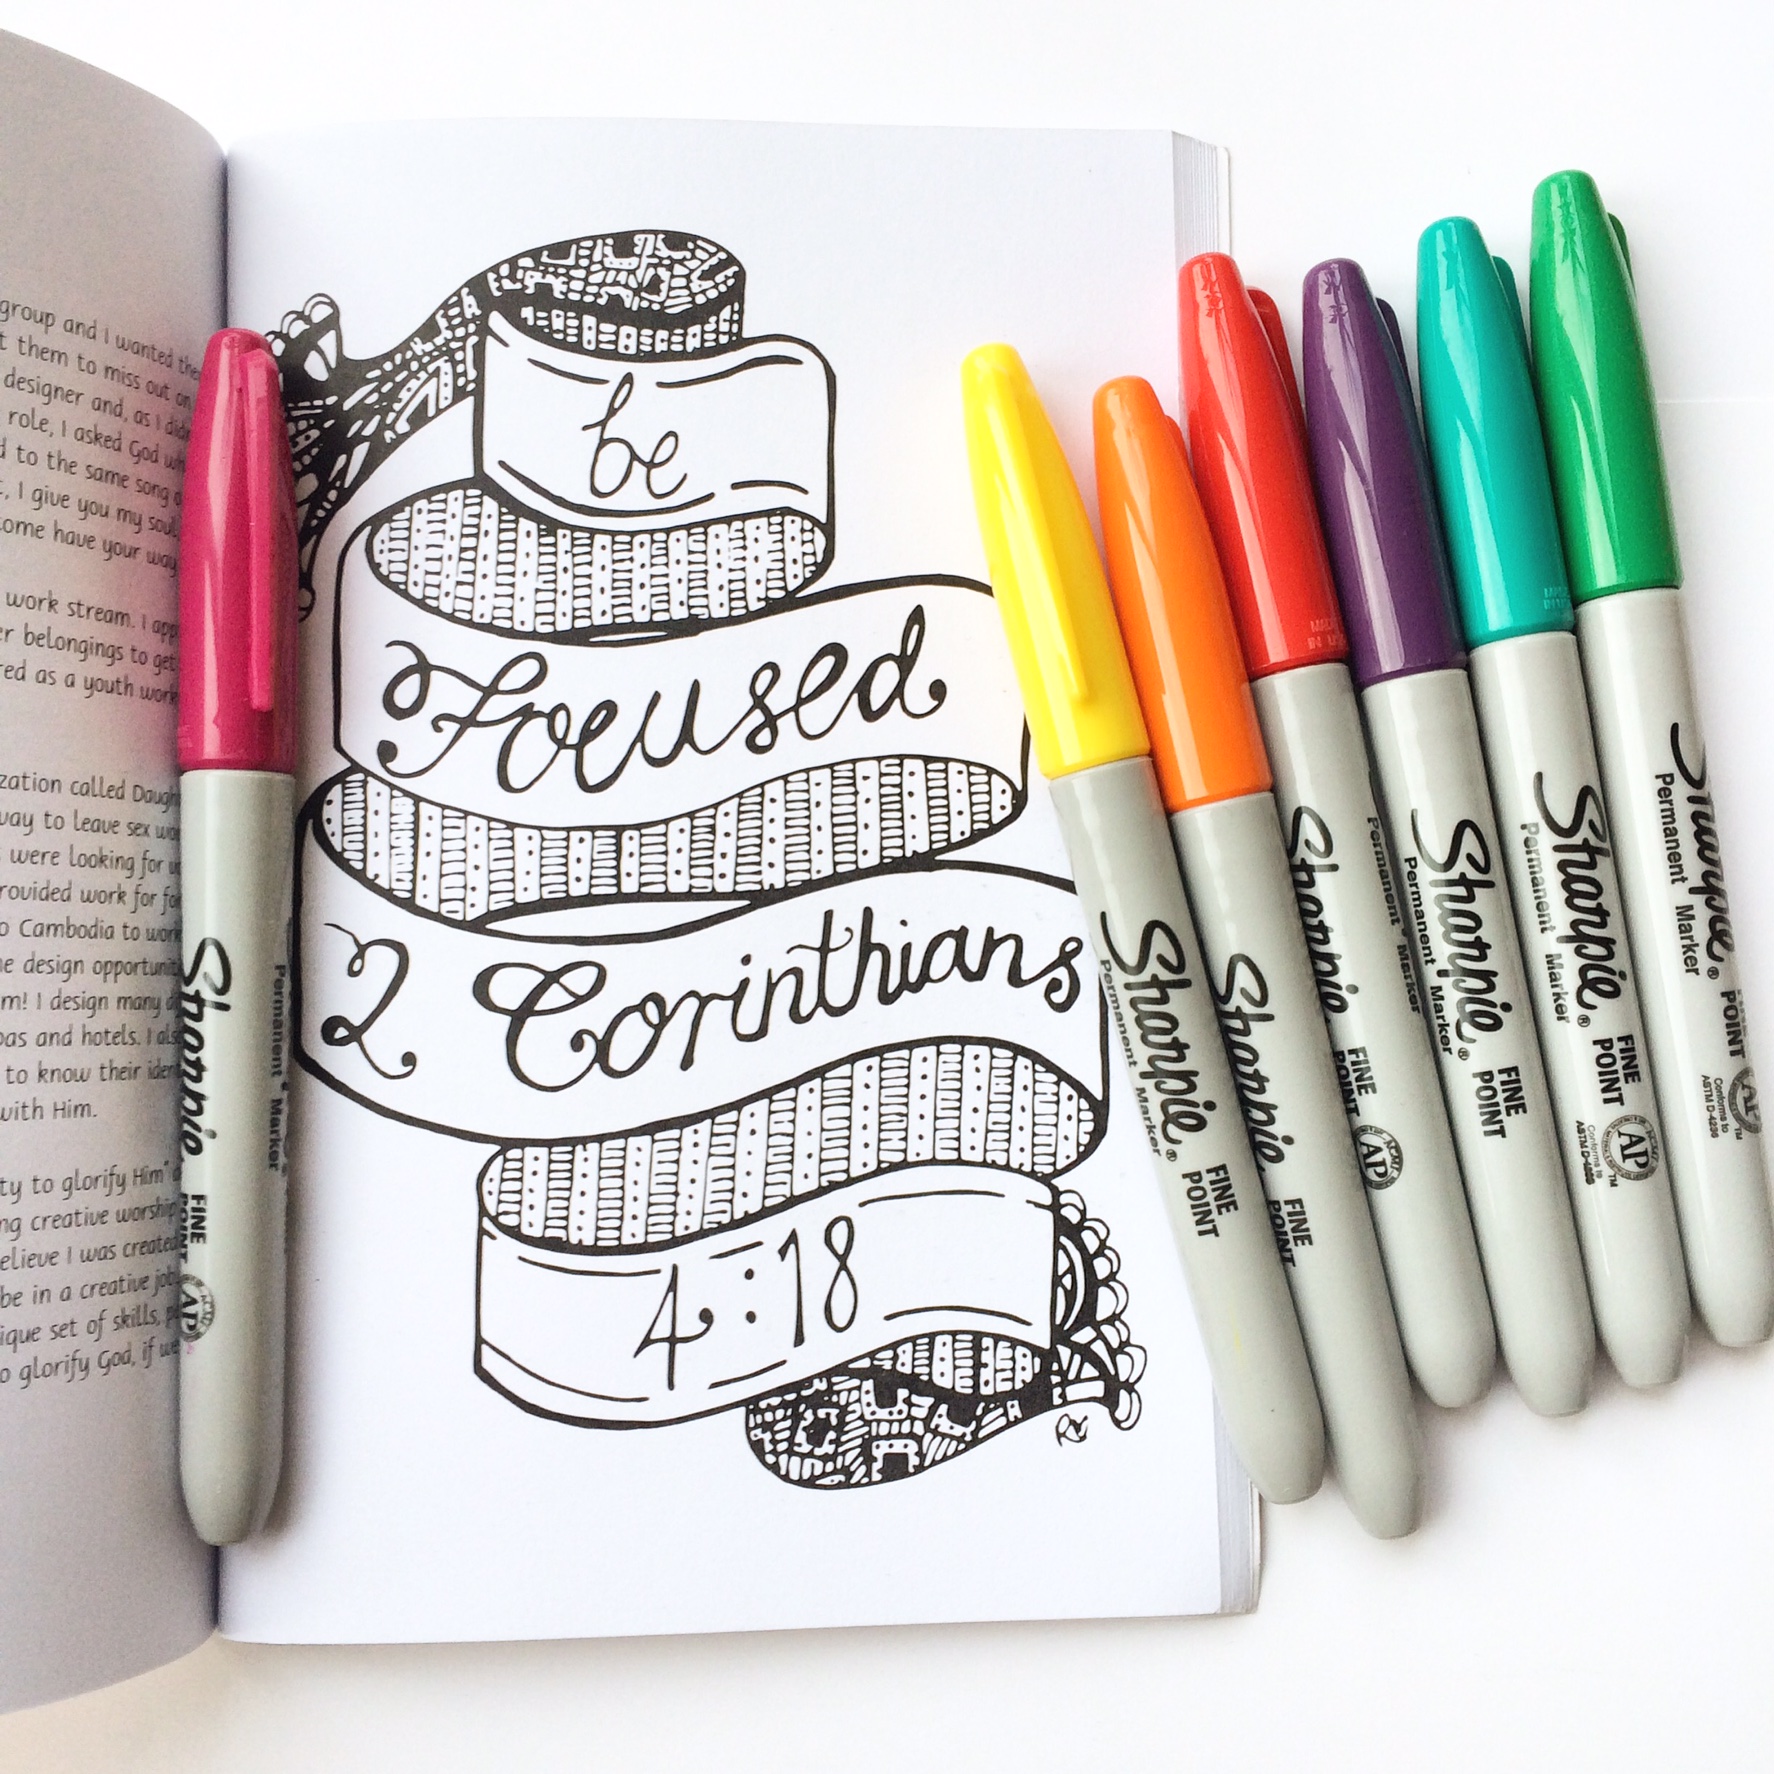 group and I wanted
t them to miss out on
designer and, as I
role, I asked God
d to the same song
, I give you my soul
come have your way
work stream. I
er belongings to get
red as a youth
zation called
way to leave sex
were looking for
rovided work for
o Cambodia to work
e design
m! I design many
pas and hotels. I also
to know their
with Him.
ty to glorify Him"
ng creative worship
elieve I was created
be in a creative job
ique set of skills,
o glorify God, if we
be
Focused
2 Corinthians
4:18
Sharpie
Permanent Marker
FINE
POINT
AP
Sharpie®
Permanent Marker
FINE
POINT
Sharpie
FINE
POINT
Sharpie
Permanent Marker
FINE
POINT
AP
Sharpie®
Permanent Marker
FINE
POINT
Sharpie®
Permanent Marker
FINE
POINT
Conforms to
ASTM D-4236
AP
Sharpie®
Permanent Marker
POINT
Conforms to
ASTM D-4236
AP